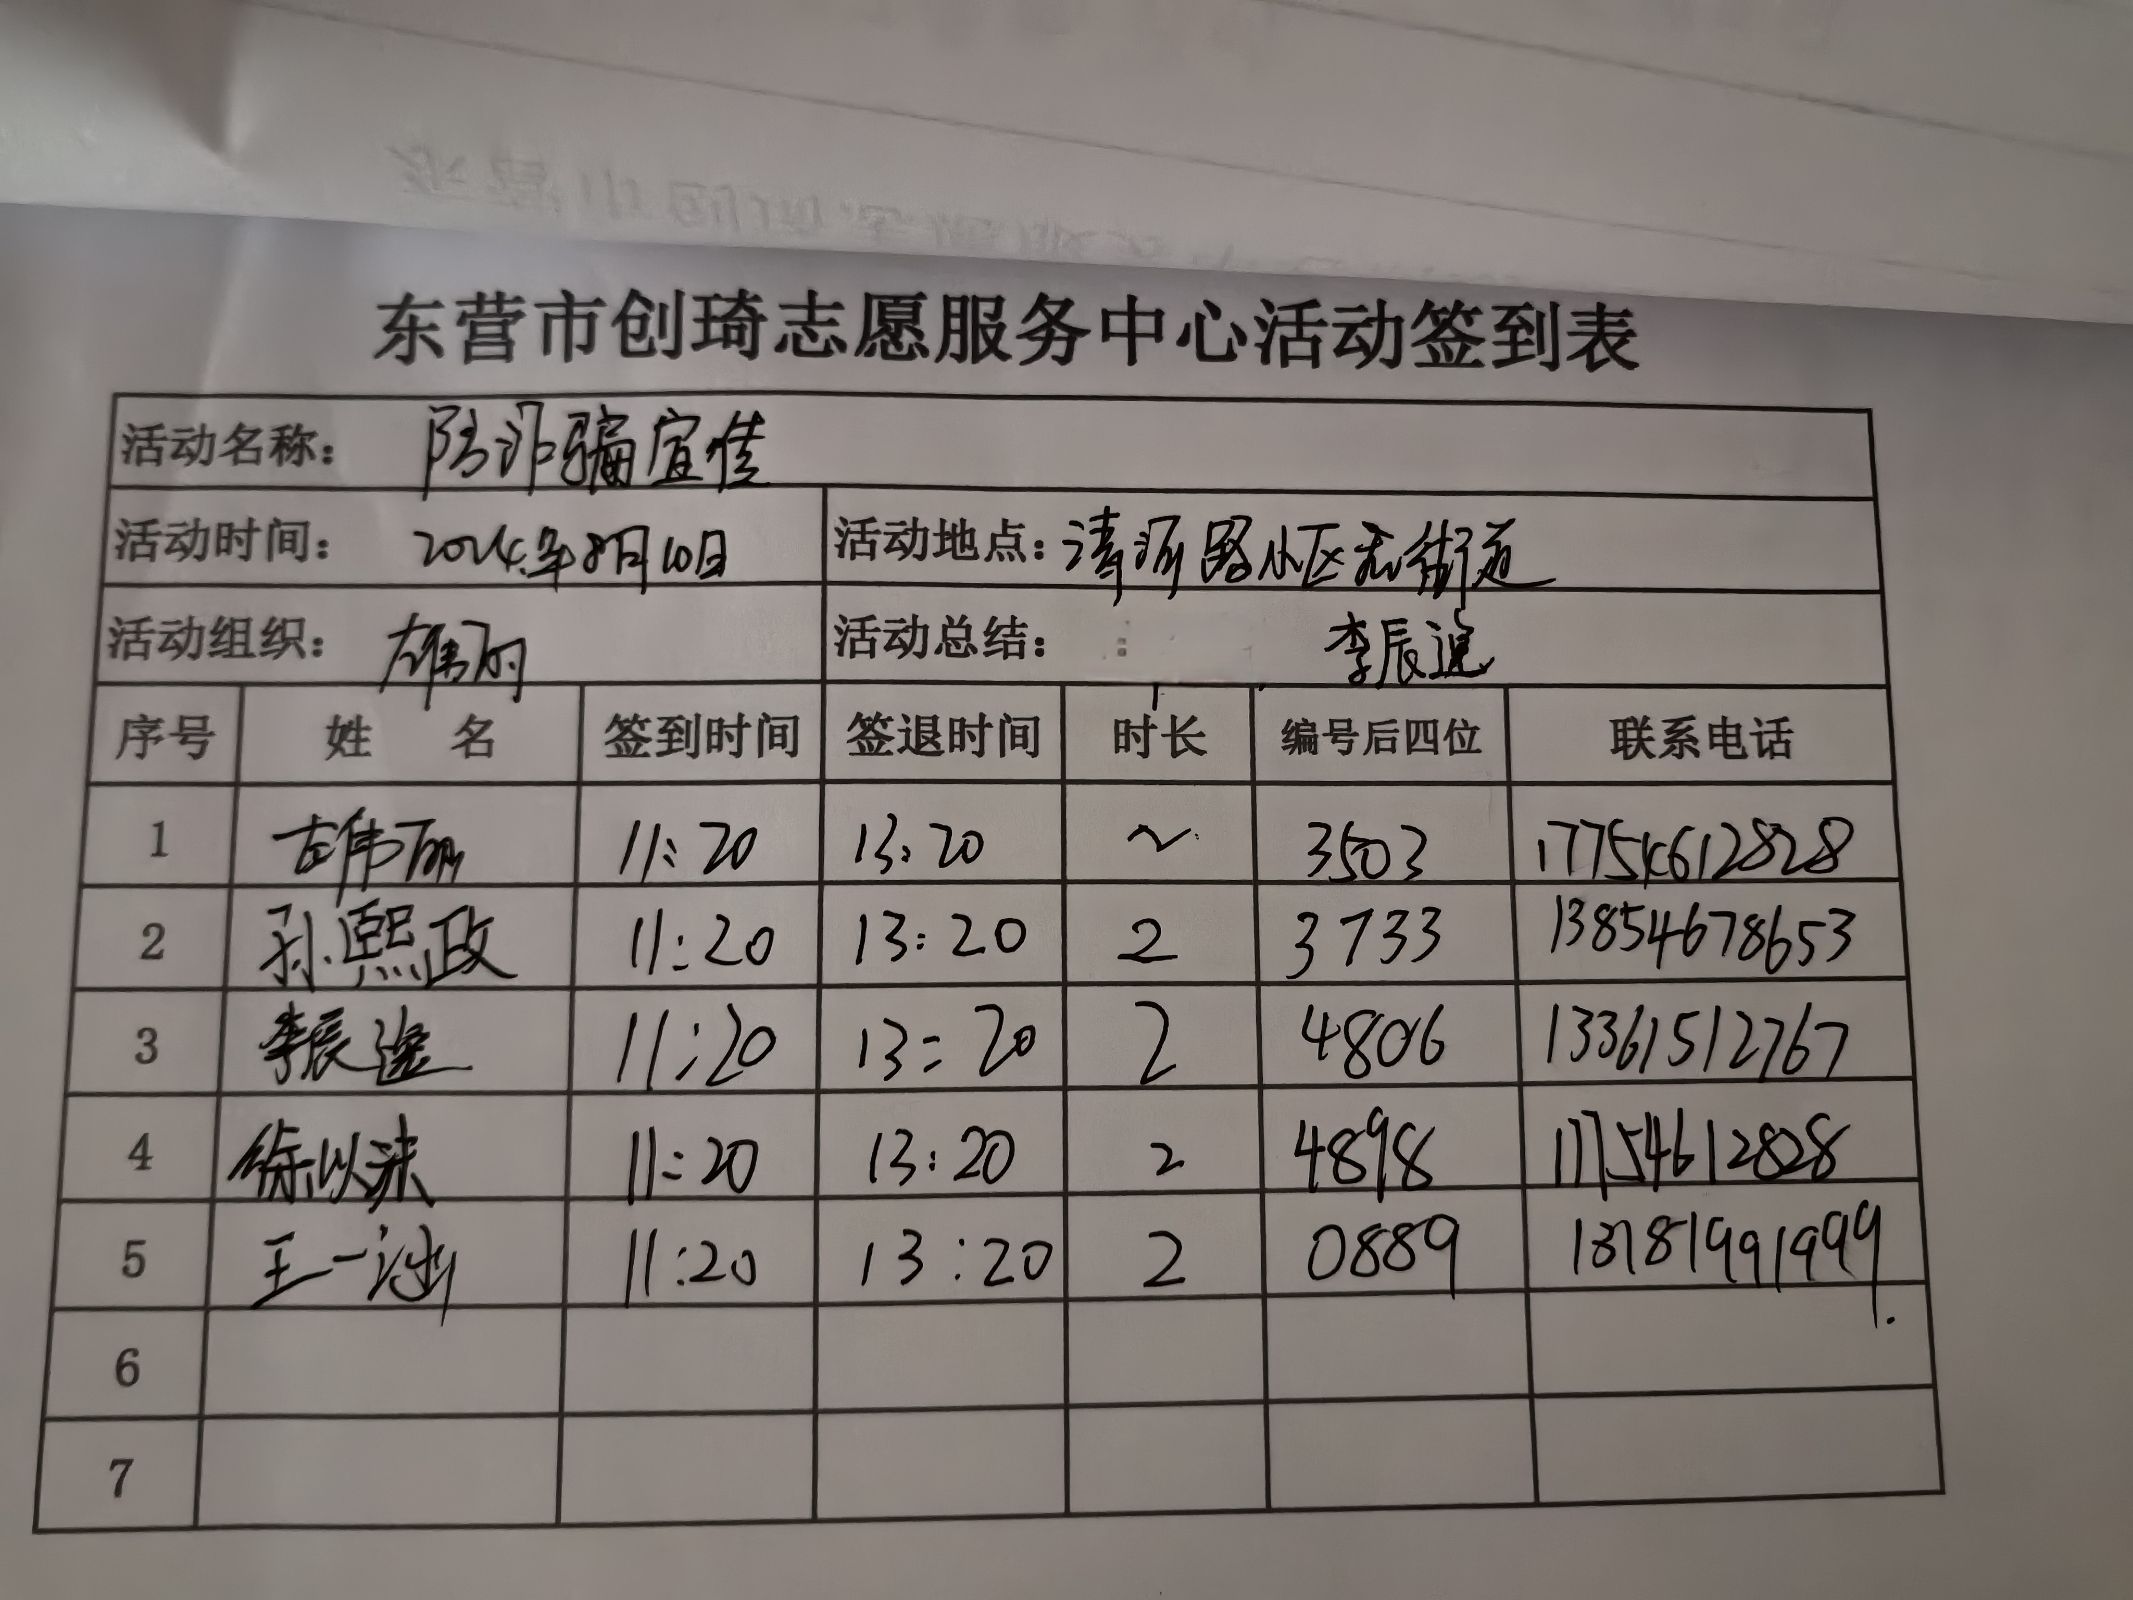 东营市创琦志愿服务中心活动签到表
活动名称: 防诈骗宣传
活动时间: 2024年8月10日 活动地点: 清河路小区和街道
活动组织: 左伟丽 活动总结: : 李辰逸
序号 姓 名 签到时间 签退时间 时长 编号后四位 联系电话
1 左伟丽 11:20 13:20 2 3503 17754612828
2 孙熙政 11:20 13:20 2 3733 13854678653
3 李辰逸 11:20 13:20 2 4806 13361512767
4 徐以沫 11:20 13:20 2 4898 17754612828
5 王一涵 11:20 13:20 2 0889
6
7